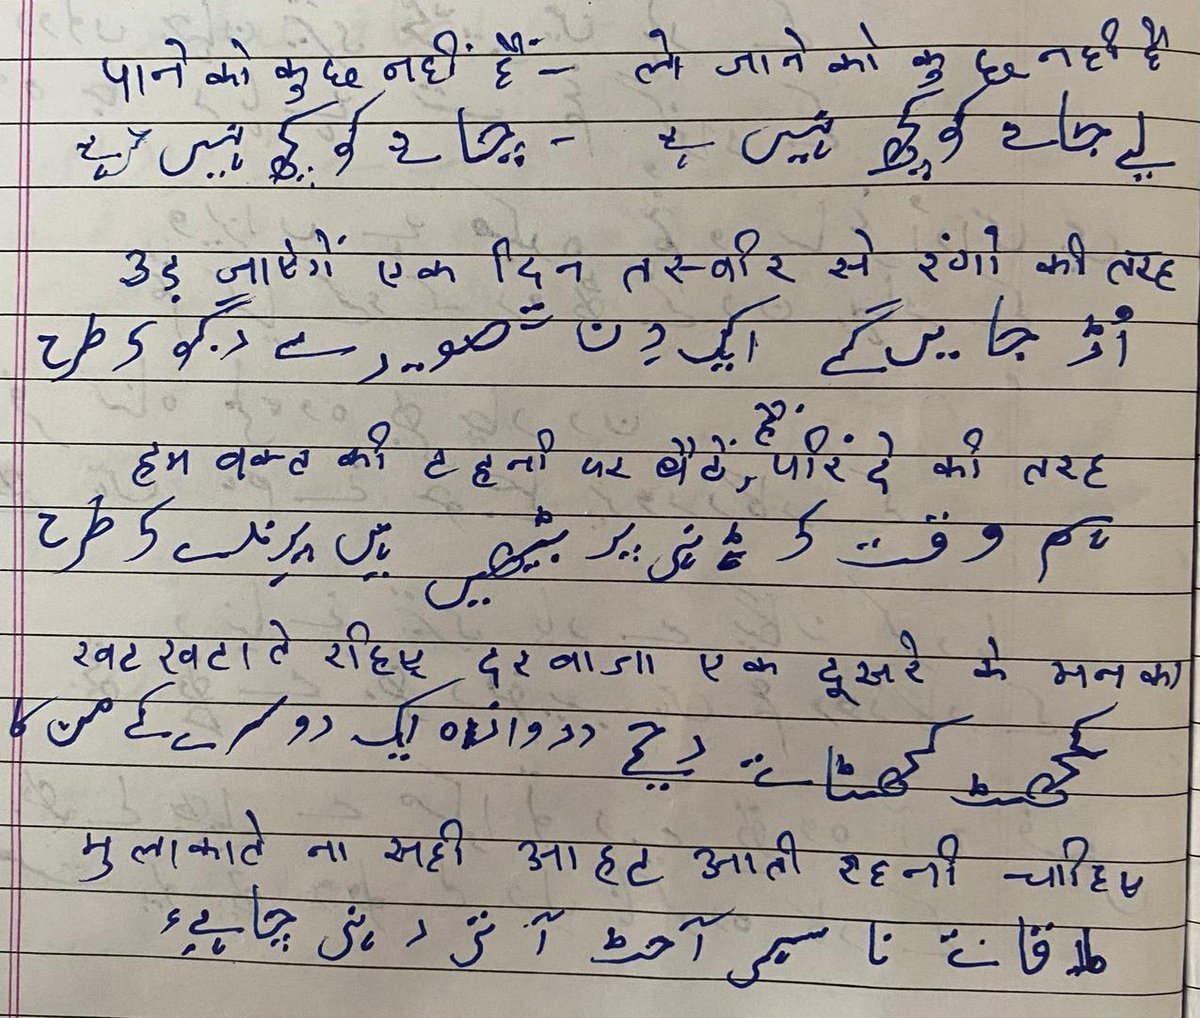 पाने को कुछ नहीं हैं - ले जाने को कुछ नहीं है
لے جانے کو کچھ نہیں ہے - پانے کو کچھ نہیں ہے
उड़ जाएंगें एक दिन तस्वीर से रंगो की तरह
اُڑ جائیں گے ایک دن تصویر سے رنگو کی طرح
हम वक्त की टहनी पर बैठें, हैं परिंदे की तरह
ہم وقت کی ٹہنی پر بیٹھیں ہیں پرندے کی طرح
खटखटाते रहिए दरवाजा एक दूसरे के मन का
کھٹ کھٹاتے رہیے دروازہ ایک دوسرے کے من کا
मुलाकाते ना सही आहट आती रहनी चाहिए
ملاقاتے نا سہی آہٹ آتی رہنی چاہیے